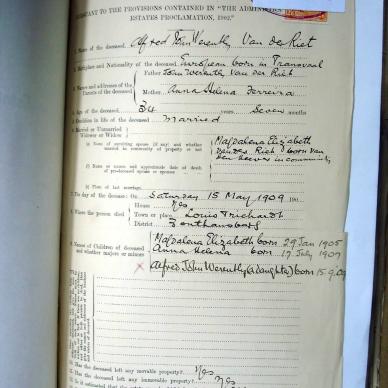 PURSUANT TO THE PROVISIONS CONTAINED IN "THE ADMINISTRATION
ESTATES PROCLAMATION, 1902."
1. Name of the deceased Alfred John Werently Van der Riet
2. Birthplace and Nationality of the deceased European born in Transvaal
3. Names and addresses of the Parents of the deceased
Father John Werently van der Riet
Mother Anna Helena Ferreira
4. Age of the deceased 34 years Seven months
5. Condition in life of the deceased Married
6. Married or Unmarried
Widower or Widow
(a) Name of surviving spouse (if any) and whether married in community of property or not
Magdalena Elizabeth
van der Riet born van
in community
(b) Name or names and approximate date of death of pre-deceased spouse or spouses
(c) Place of last marriage
7. The day of the decease: On Saturday 15 May 1909 190
8. Where the person died
House yes
Town or place Louis Trichardt
District Zoutpansberg
9. Names of Children of deceased and whether majors or minors
Magdalena Elizabeth born 29 Jan 1905
Anna Helena born 17 July 1907
Alfred John Werently (a daughter) born 15.9.09
10. Has the deceased left any movable property? Yes
11. Has the deceased left any immovable property? Yes
12. Is it estimated that the